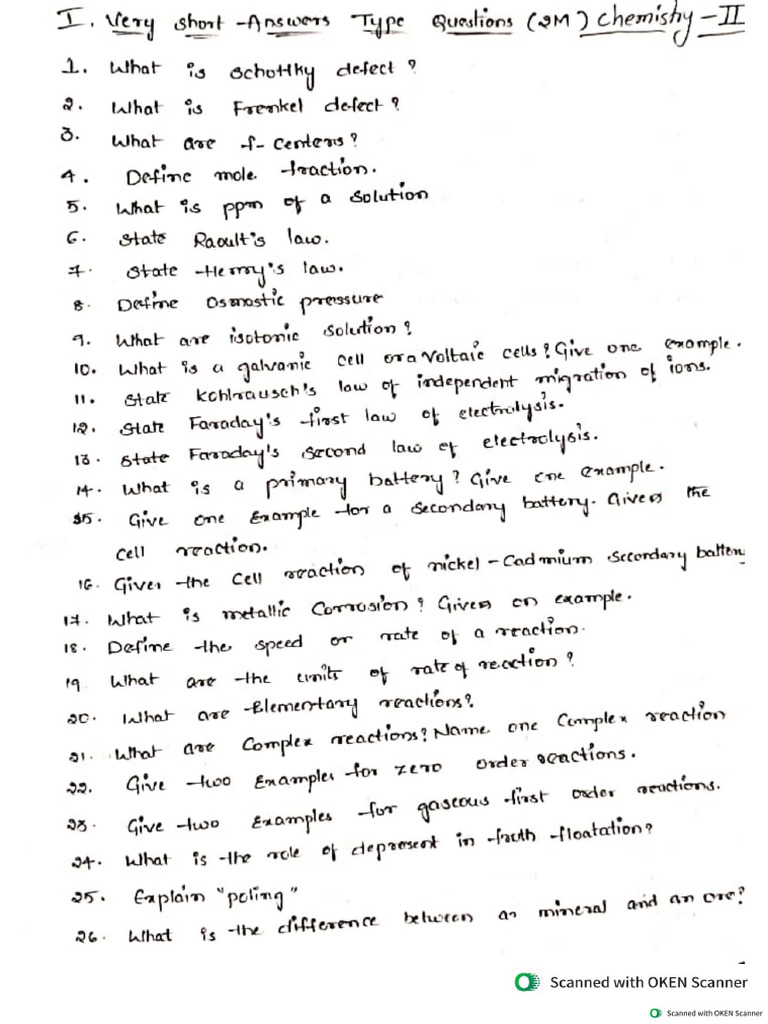 I. Very short -Answers Type Questions (2M) Chemistry -II
1. What is Schottky defect?
2. What is Frenkel defect?
3. What are f- centers?
4. Define mole fraction.
5. What is ppm of a solution
6. State Raoult's law.
7. State Henry's law.
8. Define Osmostic pressure
9. What are isotonic solution?
10. What is a galvanic cell or a Voltaic cells? Give one example.
11. State Kohlrausch's law of independent migration of ions.
12. State Faraday's first law of electrolysis.
13. State Faraday's second law of electrolysis.
14. What is a primary battery? Give one example.
15. Give one Example for a secondary battery. Given the
cell reaction.
16. Given the Cell reaction of nickel-Cadmium secordary battery
17. What is metallic Corrosion? Given on example.
18. Define the speed or rate of a reaction.
19 What are the units of rate of reaction?
20. What are Elementary reactions?
21. What are Complex reactions? Name one Complex reaction
22. Give two Examples for zero order reactions.
23. Give two Examples for gaseous first order reactions.
24. What is the role of depresent in froth floatation?
25. Explain "poling"
26. What is the difference between an mineral and an ore?
Scanned with OKEN Scanner
Scanned with OKEN Scanner